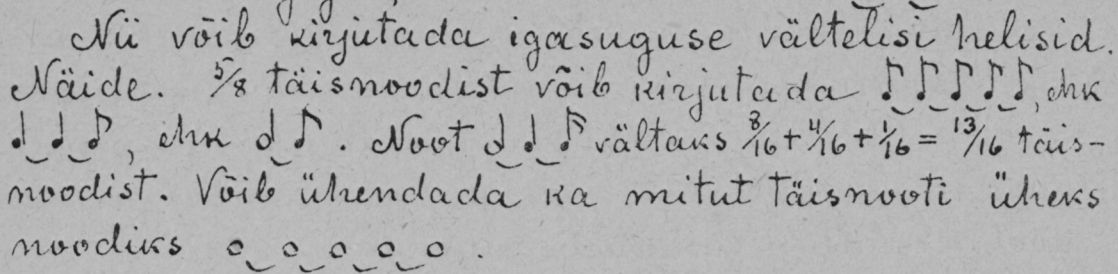 Nii võib kirjutada igasuguse vältelisi helisid.
Näide. 5/8 täisnoodist võib kirjutada ♪‿♪‿♪‿♪‿♪, ehk
♩‿♩‿♪, ehk 𝅗𝅥‿♪. Noot 𝅗𝅥‿♩‿𝅘𝅥𝅯 vältaks 8/16 + 4/16 + 1/16 = 13/16 täis-
noodist. Võib ühendada ka mitut täisnooti üheks
noodiks 𝅝‿𝅝‿𝅝‿𝅝‿𝅝.